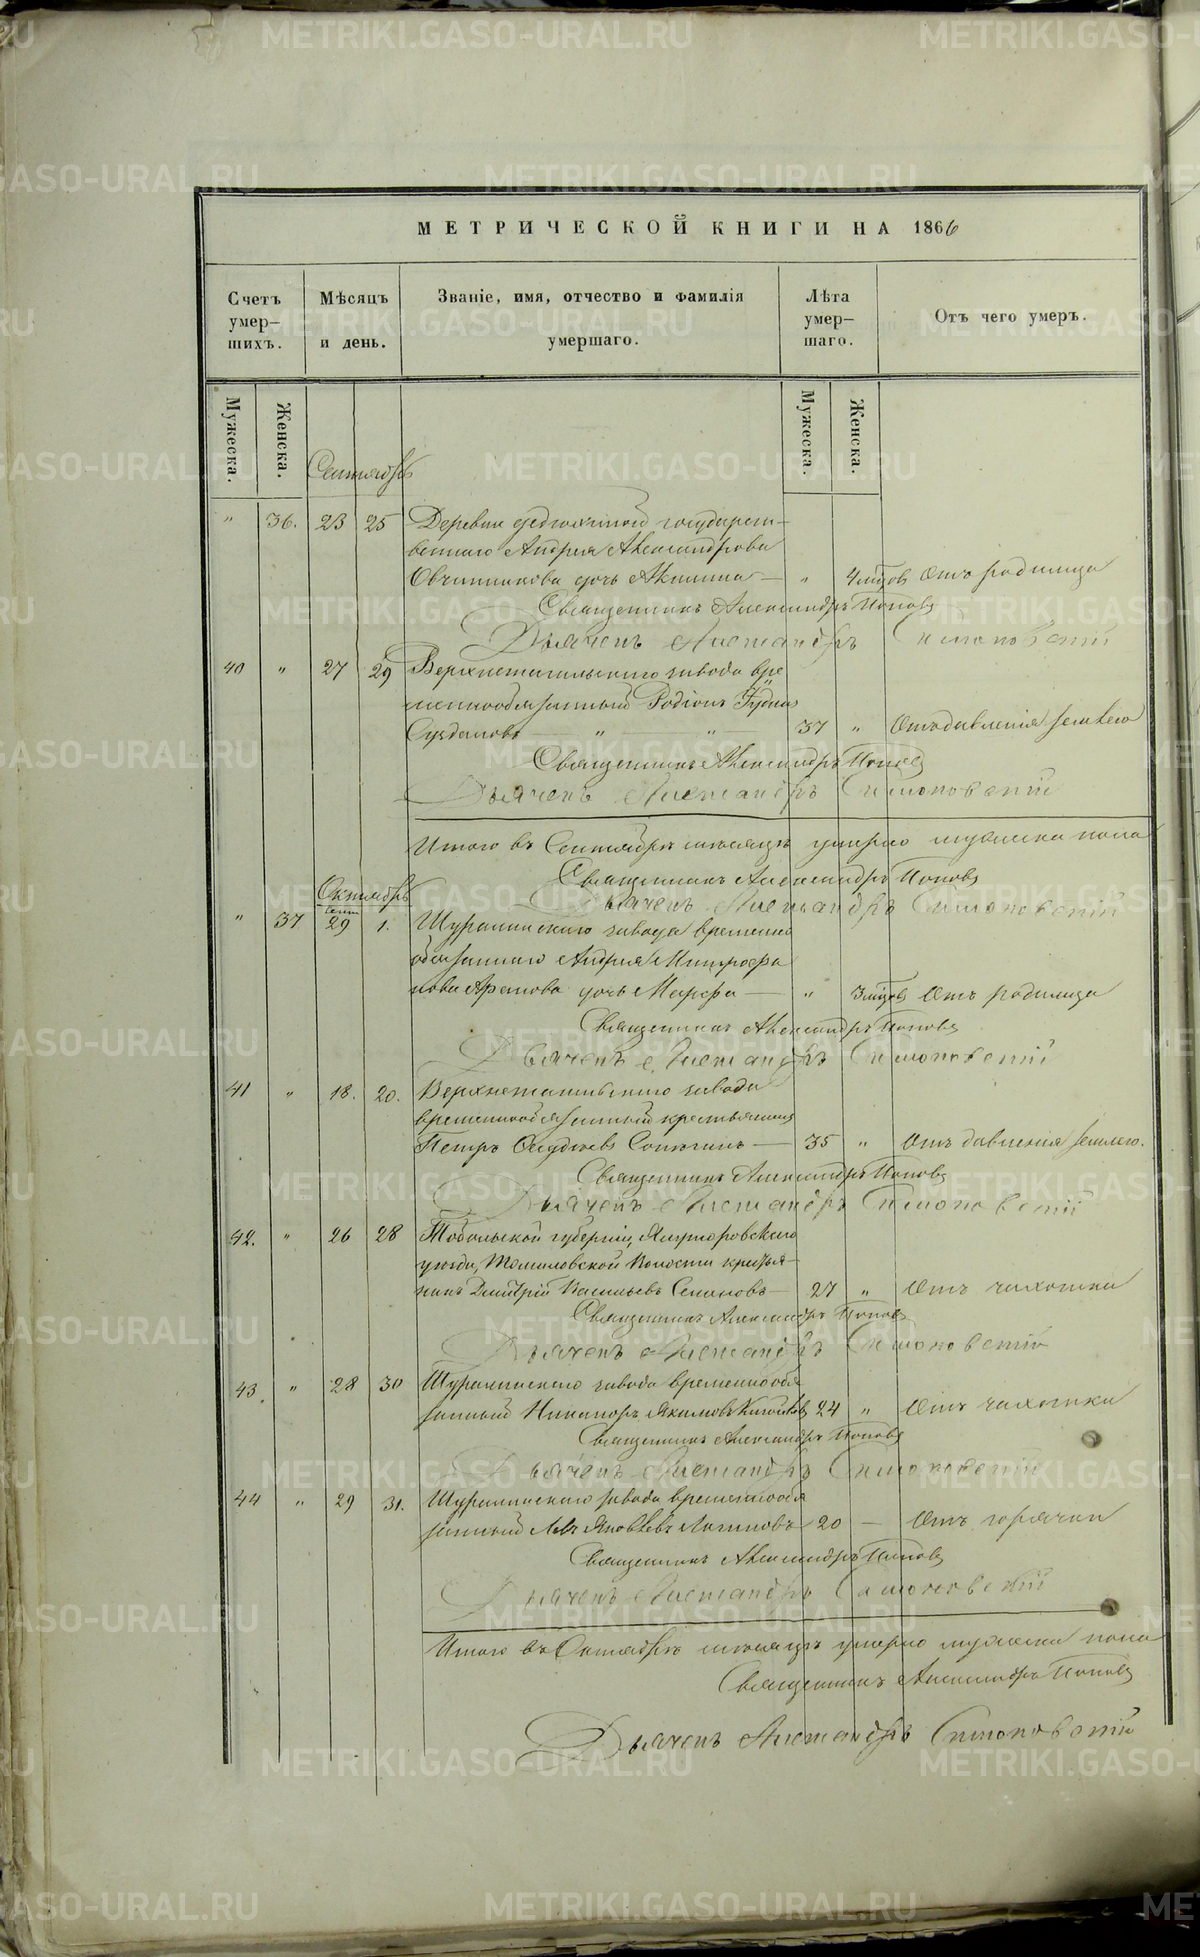 МЕТРИЧЕСКОЙ КНИГИ НА 1866
Счетъ умер-шихъ.
Мѣсяцъ и день.
Званіе, имя, отчество и фамилія умершаго.
Лѣта умер-шаго.
Отъ чего умеръ.
Мужеска.
Женска.
Мужеска.
Женска.
Сентябрь
" 36. 23 25 Деревни государст-
веннаго Андрея Александрова
Овчинникова дочь Акилина — " 4 мцов Отъ родимца
Священникъ Александръ Поповъ
Дьячекъ Александръ
40 " 27 29 Верхнетагильскаго завода вре
меннообязанный Родіонъ
Суздаловъ " " 37 " Отъ давленія землею
Священникъ Александръ Поповъ
Дьячекъ Александръ
Итого въ Сентябрѣ мѣсяцѣ умерло мужеска пола
Священникъ Александръ Поповъ
Октябрь
Дьячекъ Александръ
" 37 29 1. Шуралинскаго завода временно
обязаннаго Андрея Митрофа
нова Арапова дочь Марфа — " 3 мцов Отъ родимца
Священникъ Александръ Поповъ
Дьячекъ Александръ
41 " 18. 20. Верхнетагильскаго завода
временнообязанный крестьянинъ
Петръ — 35 " Отъ давленія землею.
Священникъ Александръ Поповъ
Дьячекъ Александръ
42. " 26 28 Тобольской губерніи, Ялуторовскаго
уѣзда, Томиловской Волости крестья-
нинъ Дмитрій Васильевъ Семеновъ — 27 " Отъ чахотки
Священникъ Александръ Поповъ
Дьячекъ Александръ
43 " 28 30 Шуралинскаго завода временнообя
занный Никаноръ Якимовъ 24 " Отъ чахотки
Священникъ Александръ Поповъ
Дьячекъ Александръ
44 " 29 31. Шуралинскаго завода временнообя
занный Левъ Яковлевъ Логиновъ 20 — Отъ горячки
Священникъ Александръ Поповъ
Дьячекъ Александръ
Итого въ Октябрѣ мѣсяцѣ умерло мужеска пола
Священникъ Александръ Поповъ
Дьячекъ Александръ
METRIKI.GASO-URAL.RU